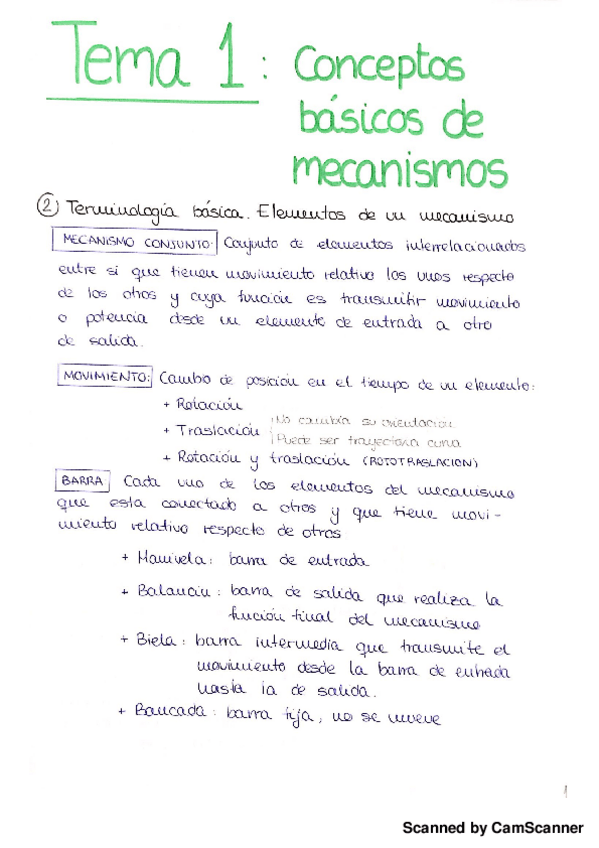 Tema 1: Conceptos
básicos de
mecanismos
② Terminología básica. Elementos de un mecanismo
MECANISMO CONJUNTO: Conjunto de elementos interrelacionados
entre si que tienen movimiento relativo los unos respecto
de los otros y cuya función es transmitir movimiento
o potencia desde un elemento de entrada a otro
de salida.
MOVIMIENTO: Cambio de posición en el tiempo de un elemento:
+ Rotación
+ Traslación
¡No cambia su orientación
¡Puede ser trayectoria curva
+ Rotación y traslación (ROTOTRASLACION)
BARRA Cada uno de los elementos del mecanismo
que esta conectado a otros y que tiene movi-
miento relativo respecto de otros
+ Manivela: barra de entrada
+ Balancín: barra de salida que realiza la
función final del mecanismo
+ Biela: barra intermedia que transmite el
movimiento desde la barra de entrada
hasta la de salida.
+ Bancada: barra fija, no se mueve
1
Scanned by CamScanner